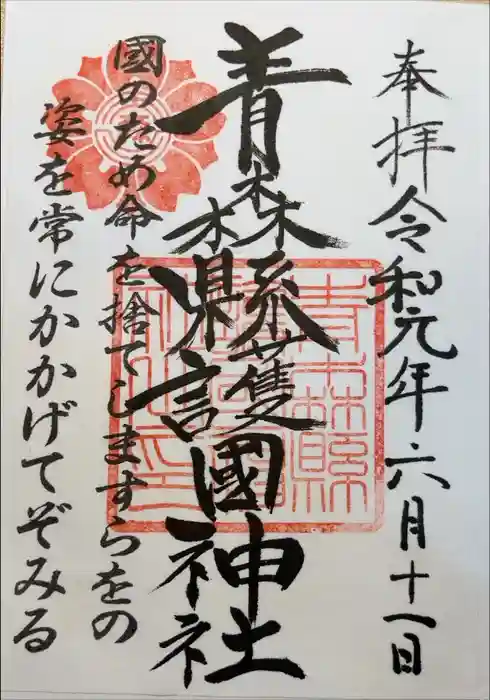 奉拝 令和元年六月十一日
青森縣護國神社
國のため命を捨てしますらをの
姿を常にかかげてぞみる